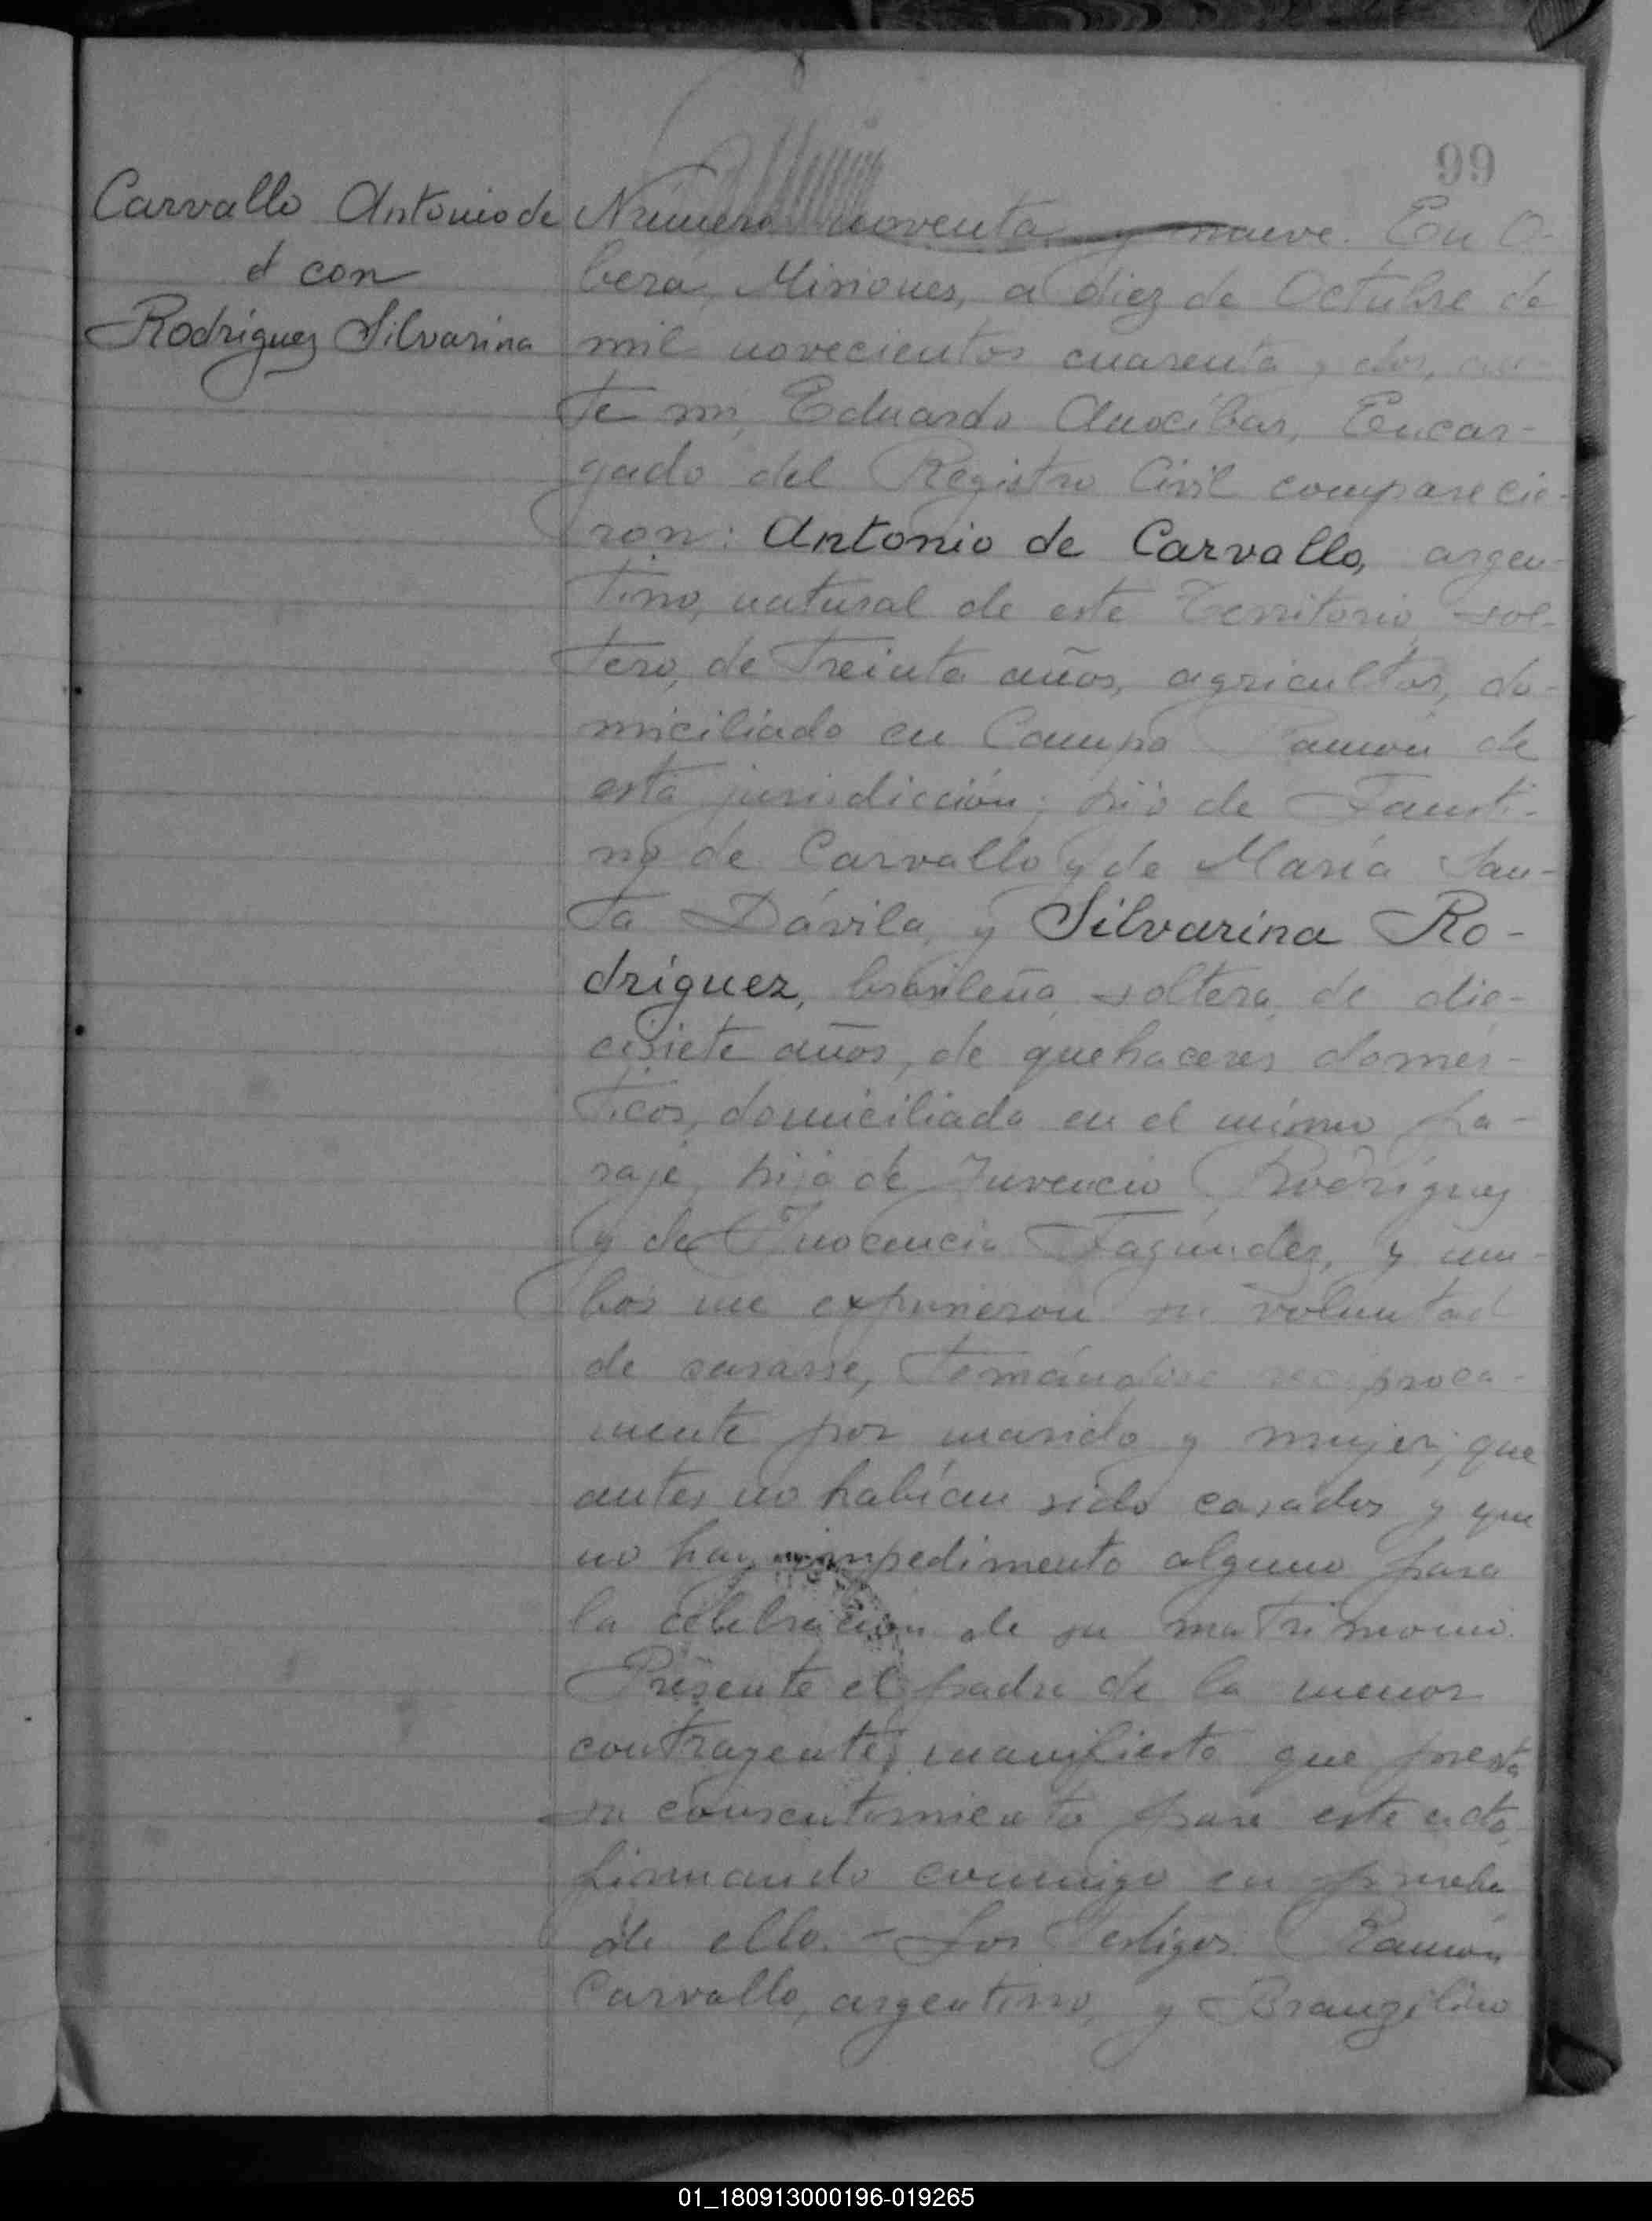 99
Carvallo Antonio de
d con
Rodríguez Silvarina
Número noventa y nueve. En O-
berá, Misiones, a diez de Octubre de
mil novecientos cuarenta y dos, an-
te mi, Eduardo Ancibar, Encar-
gado del Registro Civil comparecie-
ron: Antonio de Carvallo, argen-
tino, natural de este Territorio, sol-
tero, de treinta años, agricultor, do-
miciliado en Campo Ramón de
esta jurisdicción; hijo de Fausti-
no de Carvallo y de María San-
ta Dávila, y Silvarina Ro-
dríguez, brasileña, soltera, de die-
cisiete años, de quehaceres domés-
ticos, domiciliada en el mismo pa-
raje, hija de Juvencio Rodríguez
y de Inocencia Fagúndez, y am-
bos me expusieron su voluntad
de casarse, tomándose recíproca-
mente por marido y mujer; que
antes no habían sido casados y que
no hay impedimento alguno para
la celebración de su matrimonio.
Presente el padre de la menor
contrayente, manifiesta que presta
su consentimiento para este acto,
firmando conmigo en prueba
de ello. - Los testigos Ramón
Carvallo, argentino, y Brauzilino
01_180913000196-019265